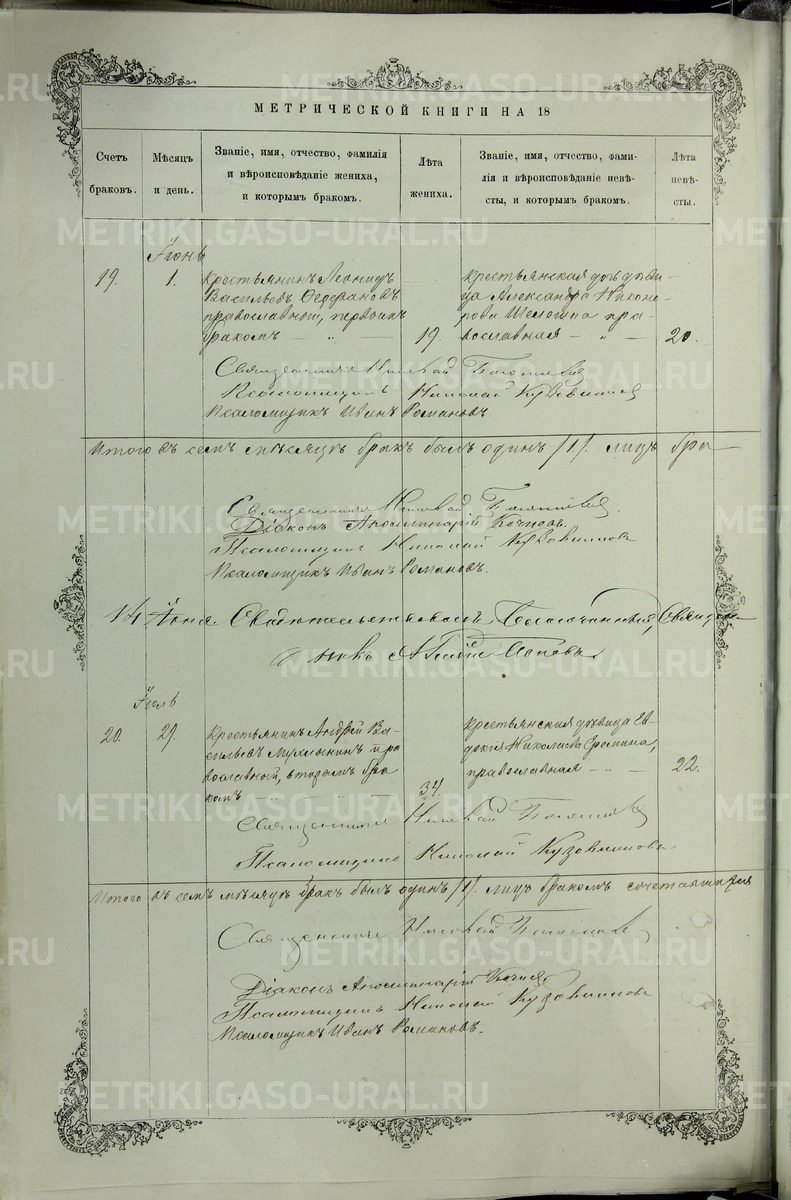 МЕТРИЧЕСКОЙ КНИГИ НА 18
Счетъ браковъ.
Мѣсяцъ и день.
Званіе, имя, отчество, фамилія и вѣроисповѣданіе жениха, и которымъ бракомъ.
Лѣта жениха.
Званіе, имя, отчество, фамилія и вѣроисповѣданіе невѣсты, и которымъ бракомъ.
Лѣта невѣсты.
Іюнь
19. 1.
Крестьянинъ Леонидъ
Васильевъ
православный, первымъ
бракомъ 19.
Крестьянская дочь дѣви-
ца Александра Никоно-
рова пра-
вославная 20.
Священникъ Николай
Псаломщикъ Николай Кузовников
Псаломщикъ Иванъ Романовъ.
Итого въ семъ мѣсяцѣ бракъ былъ одинъ /1/. лицъ бра-
Священникъ Николай
Діаконъ Аполлинарій
Псаломщикъ Николай Кузовников
Псаломщикъ Иванъ Романовъ.
14 Свидѣтельствовалъ Благочинный, Священ-
никъ Поповъ
Іюль
20. 29.
Крестьянинъ Андрей Ва-
сильевъ пра
вославный, вторымъ бра
комъ 34.
Крестьянская дѣвица Ев-
докія Николаева Еремина,
православная 22.
Священникъ Николай
Псаломщикъ Николай Кузовников
Итого въ семъ мѣсяцѣ бракъ былъ одинъ /1/ лицъ бракомъ сочетавшихся
Священникъ Николай
Діаконъ Аполлинарій
Псаломщикъ Николай Кузовников
Псаломщикъ Иванъ Романовъ.
METRIKI.GASO-URAL.RU